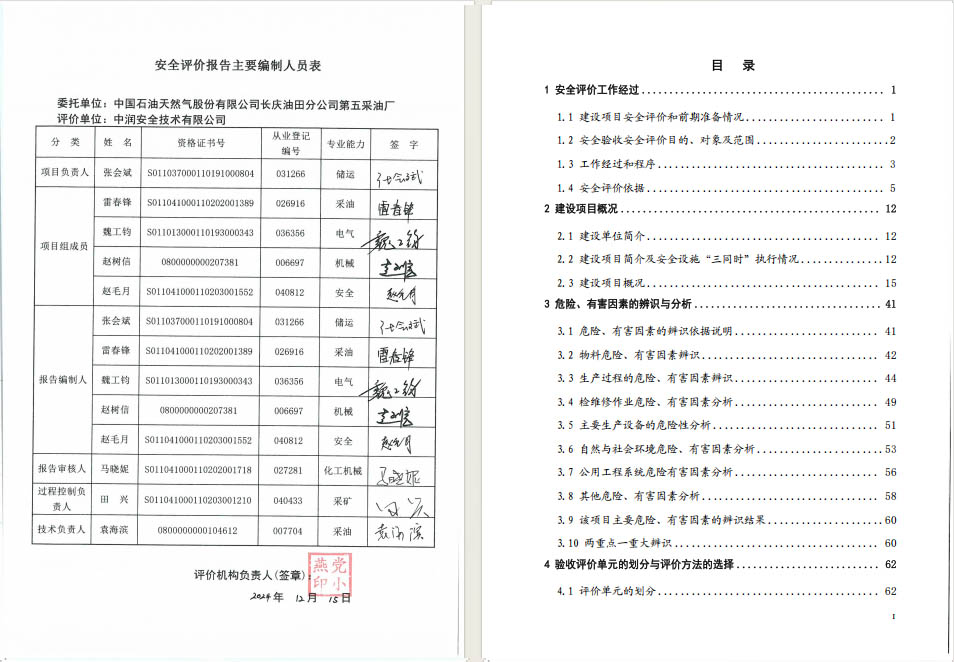 安全评价报告主要编制人员表
委托单位：中国石油天然气股份有限公司长庆油田分公司第五采油厂
评价单位：中润安全技术有限公司
分 类 姓 名 资格证书号 从业登记编号 专业能力 签 字
项目负责人 张会斌 S011037000110191000804 031266 储运 张会斌
项目组成员 雷春锋 S011041000110202001389 026916 采油 雷春锋
魏工钧 S011013000110193000343 036356 电气 魏工钧
赵树信 0800000000207381 006697 机械 赵树信
赵毛月 S011041000110203001552 040812 安全 赵毛月
报告编制人 张会斌 S011037000110191000804 031266 储运 张会斌
雷春锋 S011041000110202001389 026916 采油 雷春锋
魏工钧 S011013000110193000343 036356 电气 魏工钧
赵树信 0800000000207381 006697 机械 赵树信
赵毛月 S011041000110203001552 040812 安全 赵毛月
报告审核人 马晓妮 S011041000110202001718 027281 化工机械 马晓妮
过程控制负责人 田 兴 S011041000110203001210 040433 采矿 田兴
技术负责人 袁海滨 0800000000104612 007704 采油 袁海滨
评价机构负责人(签章)：
燕党
印小
2024年 12月 15日
目 录
1 安全评价工作经过 1
1.1 建设项目安全评价和前期准备情况 1
1.2 安全验收安全评价目的、对象及范围 2
1.3 工作经过和程序 3
1.4 安全评价依据 5
2 建设项目概况 12
2.1 建设单位简介 12
2.2 建设项目简介及安全设施“三同时”执行情况 12
2.3 建设项目概况 15
3 危险、有害因素的辨识与分析 41
3.1 危险、有害因素的辨识依据说明 41
3.2 物料危险、有害因素辨识 42
3.3 生产过程的危险、有害因素辨识 44
3.4 检维修作业危险、有害因素分析 49
3.5 主要生产设备的危险性分析 51
3.6 自然与社会环境危险、有害因素分析 53
3.7 公用工程系统危险有害因素分析 56
3.8 其他危险、有害因素分析 58
3.9 该项目主要危险、有害因素的辨识结果 60
3.10 两重点一重大辨识 60
4 验收评价单元的划分与评价方法的选择 62
4.1 评价单元的划分 62
I